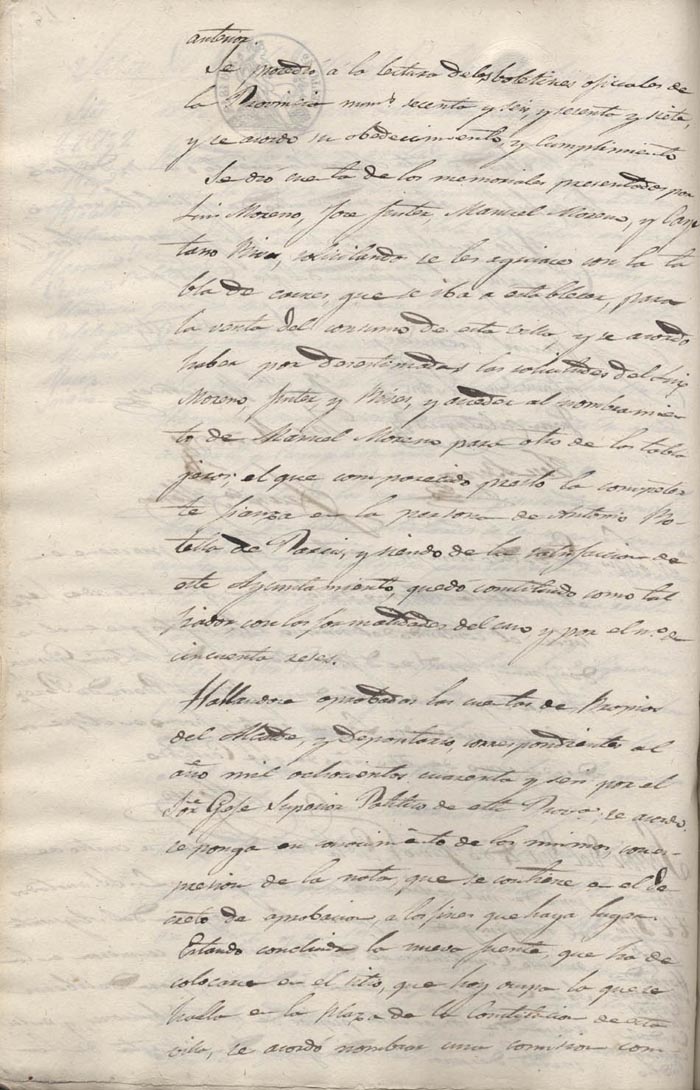 anterior.
Se procedió a la lectura de los boletines oficiales de
la Provincia num.s secenta y seis, y secenta y siete,
y se acordo su obedecimiento, y cumplimiento
Se dió cuenta de los memoriales presentados por
Luis Moreno, Jose Juster, Manuel Moreno, y Cay
tano Mira, solicitando se les agraciase con la ta
bla de carnes, que se iba a establecer, para
la venta del consumo de esta villa, y se acordo
haber por desestimadas las solicitudes del Luis
Moreno, Juster y Mira, y acceder al nombramien
to de Manuel Moreno para otro de los tabla
jeros; el que comparecido prestó la competen
te fianza en la persona de Antonio Bo
tella de and siendo de la satisfaccion de
este Ayuntamiento, quedo constituido como tal
fiador, con las formalidades del caso y por el n.o de
cincuenta reses.
Hallandose aprobadas las cuentas de Propios
del Alcalde, y Depositario, correspondientes al
año mil ochocientos cuarenta y seis por el
Sor. Gefe Superior Politico de esta Prov.a; se acordo,
se ponga en conocimiento de los mismos, con es-
presion de la nota, que se contiene en el de
creto de aprobacion, a los fines que haya lugar.
Estando concluida la nueva fuente, que ha de
colocarse en el sitio, que hoy ocupa la que se
halla en la plaza de la Constitucion de esta
villa, se acordó nombrar una comision com-